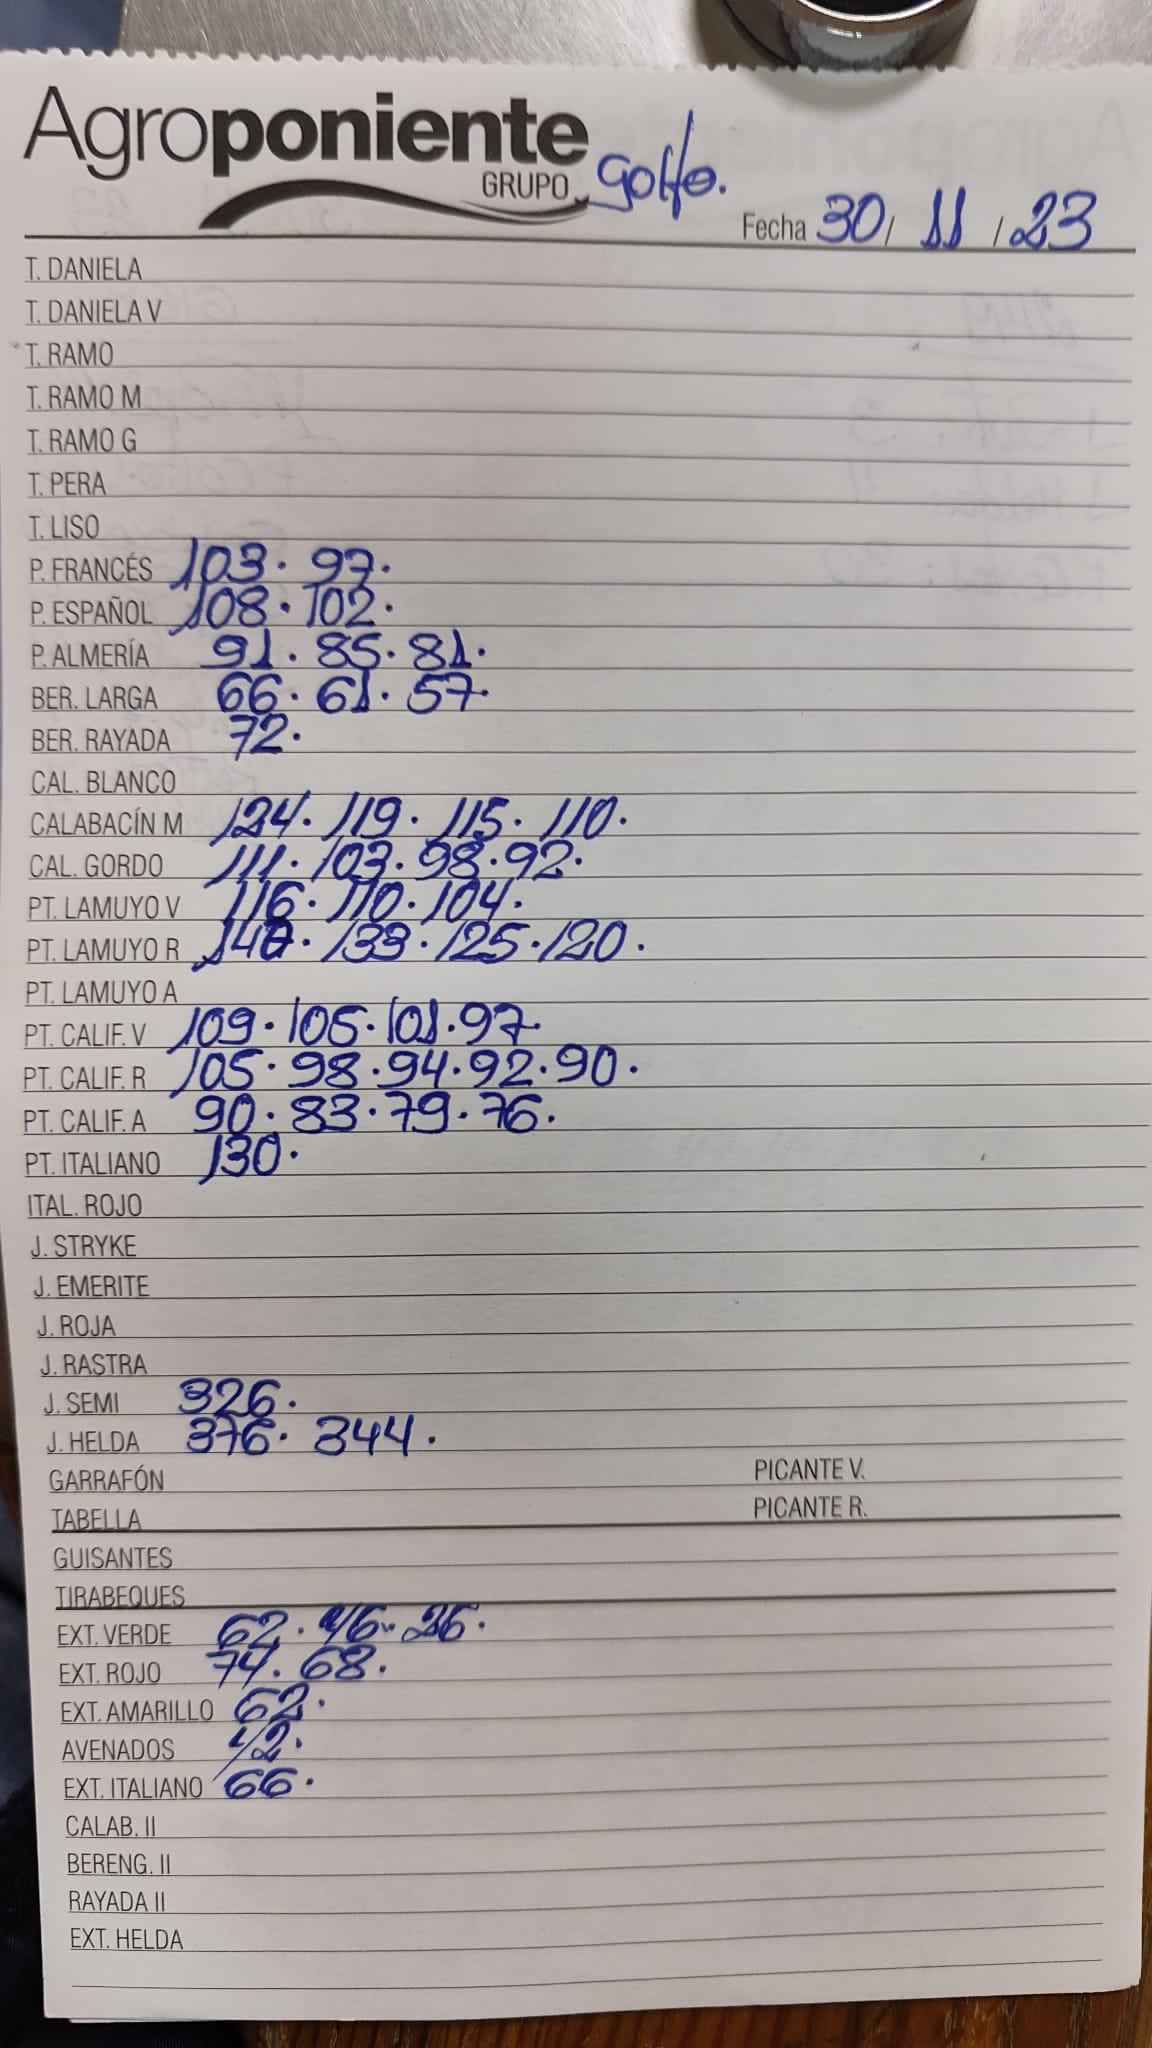 Agroponiente
GRUPO Golfo.
Fecha 30/11/23
T. DANIELA
T. DANIELA V
T. RAMO
T. RAMO M
T. RAMO G
T. PERA
T. LISO
P. FRANCÉS 103. 97.
P. ESPAÑOL 108. 102.
P. ALMERÍA 91. 85. 81.
BER. LARGA 66. 61. 57.
BER. RAYADA 72.
CAL. BLANCO
CALABACÍN M 124. 119. 115. 110.
CAL. GORDO 111. 103. 98. 92.
PT. LAMUYO V 116. 110. 104.
PT. LAMUYO R 133. 125. 120.
PT. LAMUYO A
PT. CALIF. V 109. 105. 101. 97.
PT. CALIF. R 105. 98. 94. 92. 90.
PT. CALIF. A 90. 83. 79. 76.
PT. ITALIANO 130.
ITAL. ROJO
J. STRYKE
J. EMERITE
J. ROJA
J. RASTRA
J. SEMI 326.
J. HELDA 376. 344.
GARRAFÓN PICANTE V.
TABELLA PICANTE R.
GUISANTES
TIRABEQUES
EXT. VERDE 62. 46. 26.
EXT. ROJO 74. 68.
EXT. AMARILLO 62.
AVENADOS 42.
EXT. ITALIANO 66.
CALAB. II
BERENG. II
RAYADA II
EXT. HELDA